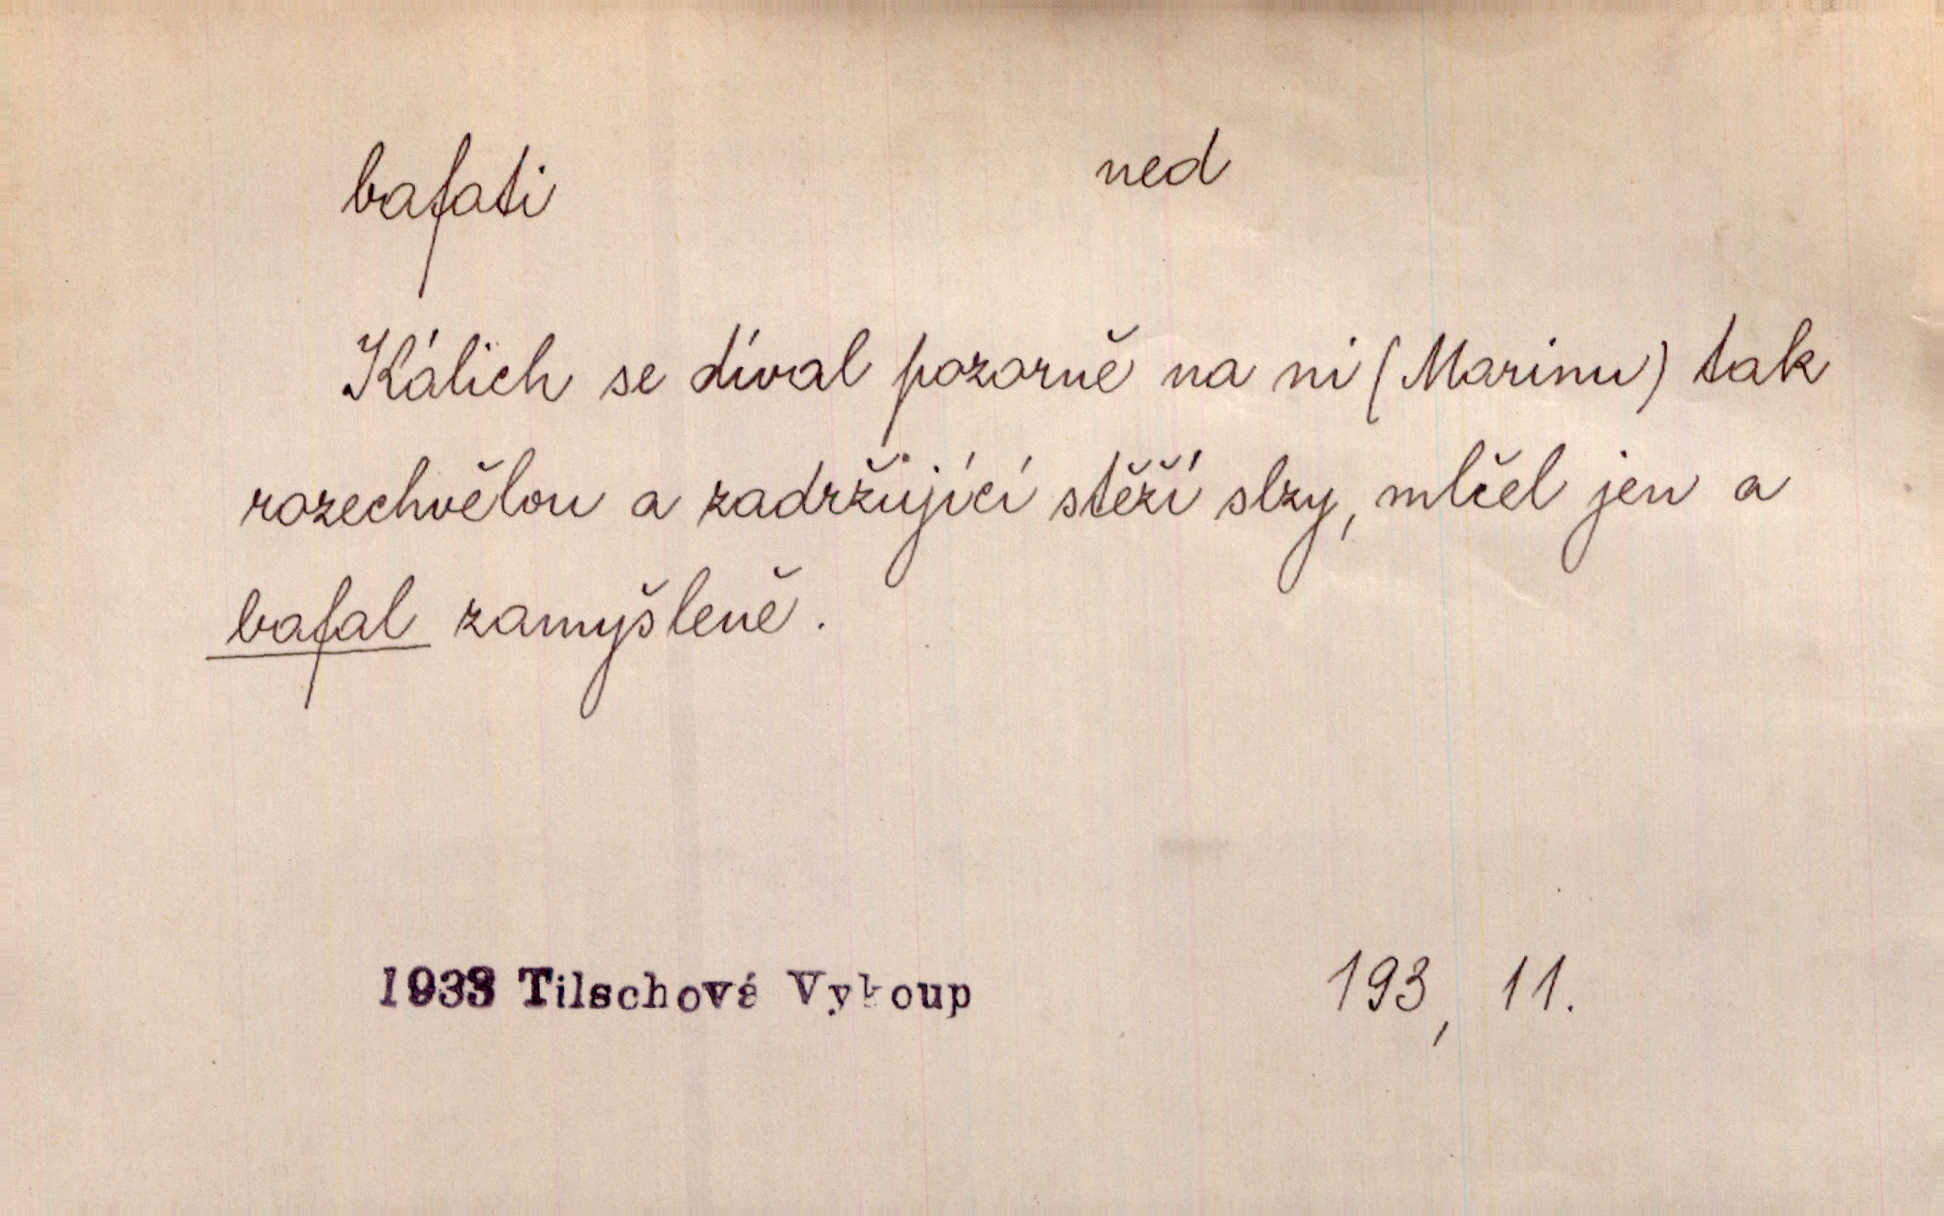 bafati ned
Kálich se díval pozorně na ni (Marinu) tak
rozechvělou a zadržující stěží slzy, mlčel jen a
bafal zamyšleně.
1933 Tilschová Vykoup 193, 11.